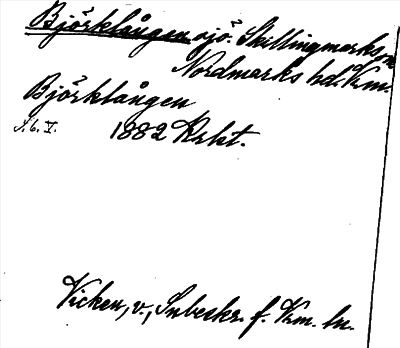 Björklången sjö. Skillingmarks sn
Nordmarks hd. Vrm.
Björklången
S. 6. V. 1882 Krkt.
Vicken, v., Snbeskr. f. Vrm. ln.